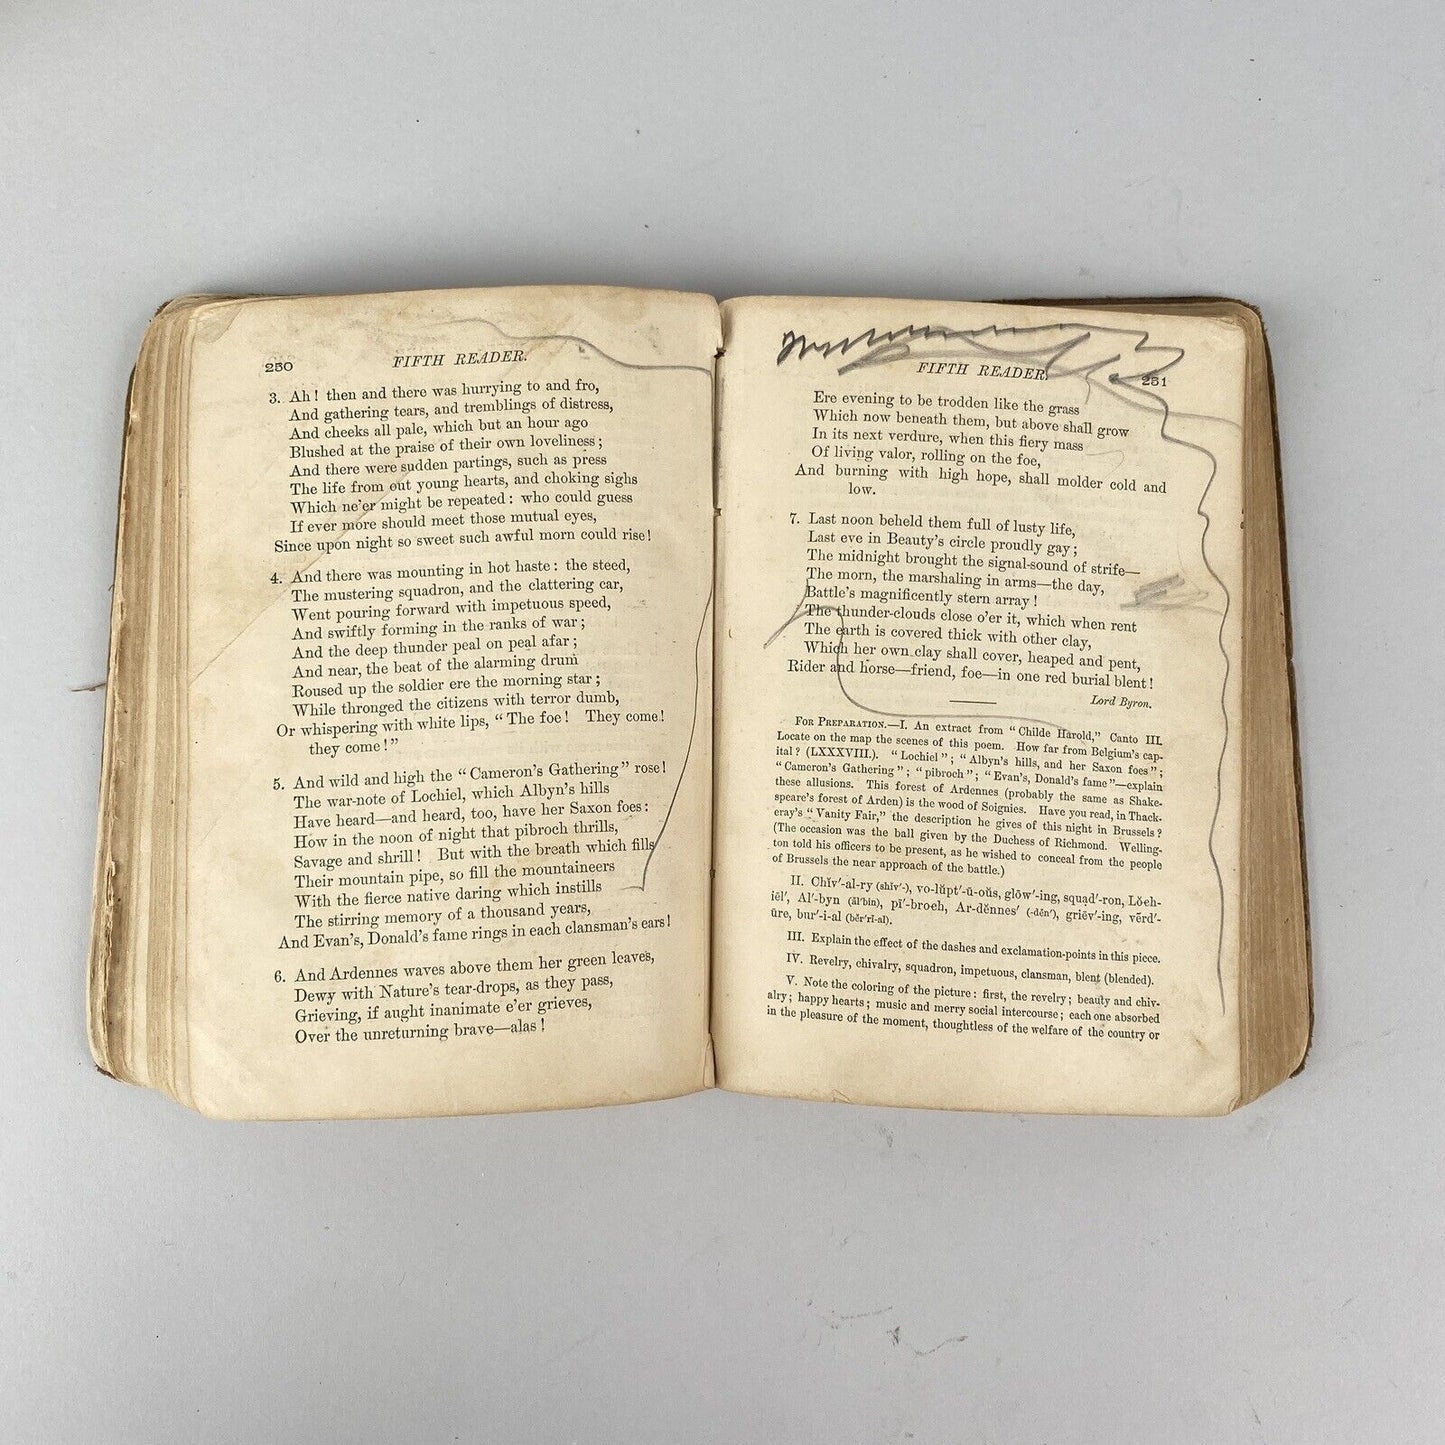 250
FIFTH READER.
3. Ah! then and there was hurrying to and fro,
And gathering tears, and tremblings of distress,
And cheeks all pale, which but an hour ago
Blushed at the praise of their own loveliness;
And there were sudden partings, such as press
The life from out young hearts, and choking sighs
Which ne'er might be repeated: who could guess
If ever more should meet those mutual eyes,
Since upon night so sweet such awful morn could rise!
4. And there was mounting in hot haste: the steed,
The mustering squadron, and the clattering car,
Went pouring forward with impetuous speed,
And swiftly forming in the ranks of war;
And the deep thunder peal on peal afar;
And near, the beat of the alarming drum
Roused up the soldier ere the morning star;
While thronged the citizens with terror dumb,
Or whispering with white lips, "The foe! They come!
they come!"
5. And wild and high the "Cameron's Gathering" rose!
The war-note of Lochiel, which Albyn's hills
Have heard—and heard, too, have her Saxon foes:
How in the noon of night that pibroch thrills,
Savage and shrill! But with the breath which fills
Their mountain pipe, so fill the mountaineers
With the fierce native daring which instills
The stirring memory of a thousand years,
And Evan's, Donald's fame rings in each clansman's ears!
6. And Ardennes waves above them her green leaves,
Dewy with Nature's tear-drops, as they pass,
Grieving, if aught inanimate e'er grieves,
Over the unreturning brave—alas!
FIFTH READER.
251
Ere evening to be trodden like the grass
Which now beneath them, but above shall grow
In its next verdure, when this fiery mass
Of living valor, rolling on the foe,
And burning with high hope, shall molder cold and
low.
7. Last noon beheld them full of lusty life,
Last eve in Beauty's circle proudly gay;
The midnight brought the signal-sound of strife—
The morn, the marshaling in arms—the day,
Battle's magnificently stern array!
The thunder-clouds close o'er it, which when rent
The earth is covered thick with other clay,
Which her own clay shall cover, heaped and pent,
Rider and horse—friend, foe—in one red burial blent!
Lord Byron.
FOR PREPARATION.—I. An extract from "Childe Harold," Canto III.
Locate on the map the scenes of this poem. How far from Belgium's cap-
ital? (LXXXVIII.). "Lochiel"; "Albyn's hills, and her Saxon foes";
"Cameron's Gathering"; "pibroch"; "Evan's, Donald's fame"—explain
these allusions. This forest of Ardennes (probably the same as Shake-
speare's forest of Arden) is the wood of Soignies. Have you read, in Thack-
eray's "Vanity Fair," the description he gives of this night in Brussels?
(The occasion was the ball given by the Duchess of Richmond. Welling-
ton told his officers to be present, as he wished to conceal from the people
of Brussels the near approach of the battle.)
II. Chĭv'-al-ry (shĭv'-), vo-lŭpt'-ū-oŭs, glōw'-ing, squạd'-ron, Lŏeh-
iēl', Al'-byn (ăl'bin), pī'-broeh, Ar-dĕnnes' (-dĕn'), griēv'-ing, vẽrd'-
ūre, bur'-i-al (bĕr'rĭ-al).
III. Explain the effect of the dashes and exclamation-points in this piece.
IV. Revelry, chivalry, squadron, impetuous, clansman, blent (blended).
V. Note the coloring of the picture: first, the revelry; beauty and chiv-
alry; happy hearts; music and merry social intercourse; each one absorbed
in the pleasure of the moment, thoughtless of the welfare of the country or